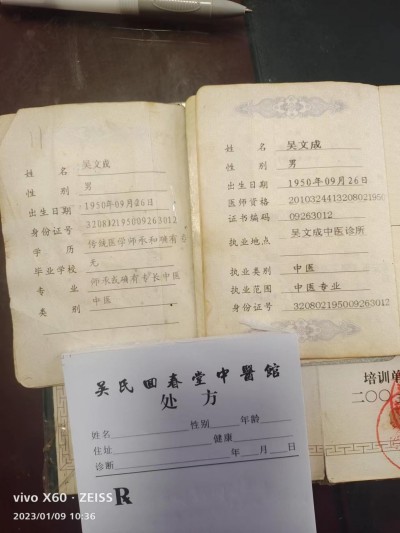 姓 名 吴文成
性 别 男
出生日期 1950年09月26日
身份证号 32082195009263012
学 历 传统医学师承和确有专
毕业学校 无
专 业 师承或确有专长中医
类 别 中医
姓 名 吴文成
性 别 男
出生日期 1950年09月26日
医师资格 2010324413208021950
证书编码 09263012
执业地点 吴文成中医诊所
执业类别 中医
执业范围 中医专业
身份证号 320802195009263012
吴氏回春堂中醫館
处 方
姓名 性别 年龄
住址 健康
诊断 年 月 日
R
培训单
二〇〇
vivo X60 · ZEISS
2023/01/09 10:36